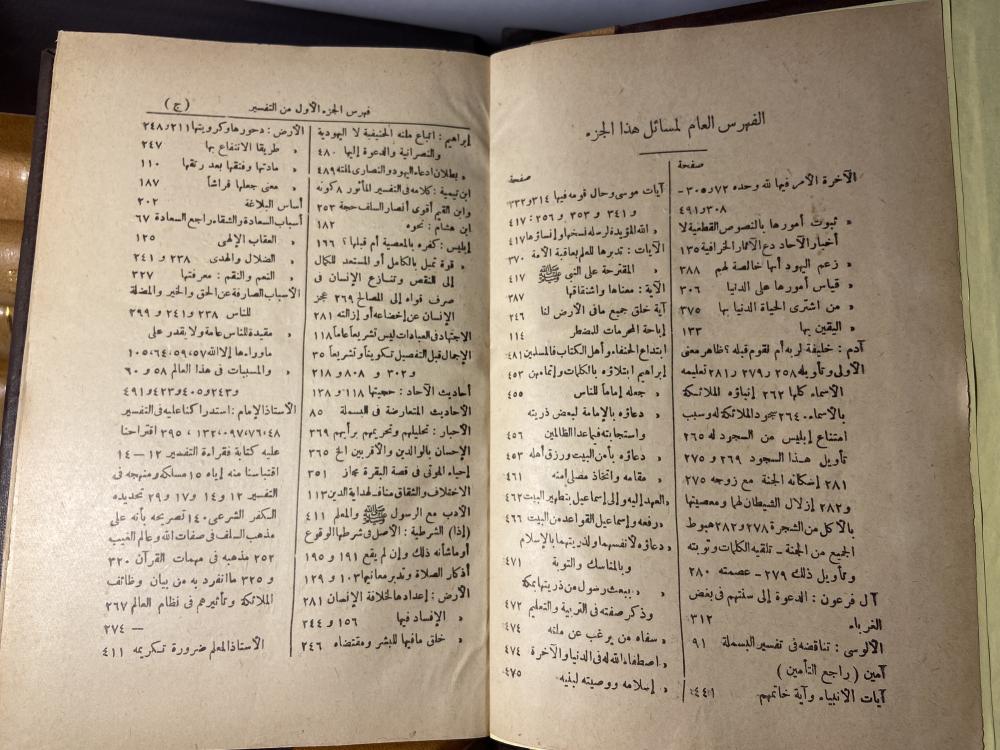 الفهرس العام لمسائل هذا الجزء
صفحة
الآخرة الأمر فيها لله وحده ٧٢ و ٣٠٥ -
٣٠٨ و ٤٩١
» ثبوت أمورها بالنصوص القطعية لا
أخبار الآحاد دع الآثار الخرافية ١٣٥
» زعم اليهود أنها خالصة لهم ٣٨٨
» قياس أمورها على الدنيا ٣٠٦
» من اشترى الحياة الدنيا بها ٣٧٥
» اليقين بها ١٣٣
آدم : خليفة لربه أم لقوم قبله ؟ ظاهر معنى
الأولى وتأويله ٢٥٨ و ٢٧٩ و ٢٨١ تعليمه
الأسماء كلها ٢٦٢ إنباؤه الملائكة
بالأسماء . ٢٦٤ سجود الملائكة له وسبب
امتناع إبليس من السجود له ٢٦٥
تأويل هذا السجود ٢٦٩ و ٢٧٥
٢٨١ إسكانه الجنة مع زوجه ٢٧٥
و ٢٨٢ إزلال الشيطان لهما ومعصيتهما
بالأكل من الشجرة ٢٧٨ و ٢٨٢ هبوط
الجميع من الجنة - تلقيه الكلمات وتوبته
وتأويل ذلك ٢٧٩ - عصمته ٢٨٠
آل فرعون : الدعوة إلى سنتهم في بغض
الغرباء ٣١٢
الآلوسى : تناقضه في تفسير البسملة ٩١
آمين ( راجع التأمين )
آيات الأنبياء وآية خاتمهم ٤٤١
صفحة
آيات موسى وحال قومه فيها ٣١٤ و ٣٣٢
و ٣٤١ و ٣٥٣ و ٣٥٦ : ٤١٧
» الله المؤيدة لرسله نسخها وإنساؤها ٤١٧
الآيات : تدبرها للعلم بعاقبة الأمة ٣٧٠
» المقترحة على النبي ﷺ ٤١٧
الآية : معناها واشتقاقها ٢٨٧
آية خلق جميع ما في الأرض لنا ٢٤٦
إباحة المحرمات للمضطر ١١٤
ابتداع الحنفاء وأهل الكتاب فالمسلمين ٤٨١
إبراهيم ابتلاؤه بالكلمات وإتمامهن ٤٥٣
» جعله إماما للناس ٤٥٥
» دعاؤه بالإمامة لبعض ذريته
واستجابته فيما عدا الظالمين ٤٥٦
» دعاؤه بأمن البيت ورزق أهله ٤٥٣
» مقامه واتخاذ مصلى منه ٤٦١
» العهد إليه وإلى إسماعيل بتطهير البيت ٤٦٢
» رفعه وإسماعيل القواعد من البيت ٤٦٦
» دعاؤه لأنفسهما ولذريتهما بالإسلام
وبالمناسك والتوبة ٤٧١
» » ببعث رسول من ذريتهما بمكة
وذكر صفته في التربية والتعليم ٤٧٢
» سفاه من يرغب عن ملته ٤٧٤
» اصطفاء الله له في الدنيا والآخرة ٤٧٤
» إسلامه ووصيته لبنيه ٤٧٥
فهرس الجزء الأول من التفسير ( ج )
إبراهيم : اتباع ملته الحنيفية لا اليهودية
والنصرانية والدعوة إليها ٤٨٠
» بطلان ادعاء اليهود والنصارى لملته ٤٨٩
ابن تيمية : كلامه في التفسير المأثور ٨ كونه
وابن القيم أقوى أنصار السلف حجة ٢٥٣
ابن هشام : نحوه ١٨٢
إبليس : كفره بالمعصية أم قبلها ؟ ١٦٦
» قوة تميل بالكامل أو المستعد للكمال
إلى النقص وتنازع الإنسان في
صرف قواه إلى المصالح ٢٦٩ عجز
الإنسان عن إخضاعه أو إزالته ٢٨١
الاجتهاد في العبادات ليس تشريعا عاما ١١٨
الإجمال قبل التفصيل تكوينا وتشريعا ٣٥
و ٣٠٢ و ٨٠٨ و ٢١٨
أحاديث الآحاد : حجيتها ١١٨ و ١٣٨
الأحاديث المتعارضة في البسملة ٨٥
الأحبار : تحليلهم وتحريمهم برأيهم ٣٦٩
الإحسان بالوالدين والأقربين الخ ٣٦٥
إحياء الموتى في قصة البقرة مجاز ٣٥١
الاختلاف والشقاق مناف لهداية الدين ١١٣
الأدب مع الرسول ﷺ والمعلم ٤١١
( إذا ) الشرطية : الأصل في شرطها الوقوع
أو ما شأنه ذلك وإن لم يقع ١٩١ و ١٩٥
أذكار الصلاة وتدبر معانيها ١٠٣ و ١٢٩
الأرض : إعدادها لخلافة الإنسان ٢٨١
» الإفساد فيها ١٥٦ و ٢٤٤
» خلق ما فيها للبشر ومقتضاه ٢٤٦
الأرض : دحورها وكرويتها ٢١١ و ٢٤٨
» طريقا الانتفاع بها ٢٤٧
» مادتها وفتقها بعد رتقها ١١٠
» معنى جعلها فراشاً ١٨٧
أساس البلاغة ٢٠٢
أسباب السعادة والشقاء راجع السعادة ٦٧
» العقاب الإلهى ١٢٥
» الضلال والهدى ٢٣٨ و ٢٤١
» النعم والنقم : معرفتها ٣٢٧
الأسباب الصارفة عن الحق والخير والمضلة
للناس ٢٣٨ و ٢٤١ و ٢٩٩
» مقيدة للناس عامة ولا يقدر على
ما وراءها إلا الله ٥٧، ٥٩، ٦٤، ١٠٥
» والمسببات في هذا العالم ٥٨ و ٦٠
و ٢٤٣ و ٤٠٥ و ٤٢٣ و ٤٩١
الأستاذ الإمام : استدراكنا عليه في التفسير
٤٨، ٧٦، ٩٧، ١٣٢، ٣٩٥ اقتراحنا
عليه كتابة فقراءة التفسير ١٢ - ١٤
اقتباسنا منه إياه ١٥ مسلكه ومنهجه في
التفسير ١٢ و ١٤ و ١٧ و ٢٩ تحديده
الكفر الشرعى ١٤٠ تصريحه بأنه على
مذهب السلف في صفات الله وعالم الغيب
٢٥٢ مذهبه في مبهمات القرآن ٣٢٠
و ٣٢٥ ما انفرد به من بيان وظائف
الملائكة وتأثيرهم في نظام العالم ٢٦٧
- ٢٧٤
الأستاذ المعلم ضرورة تكريمه ٤١١